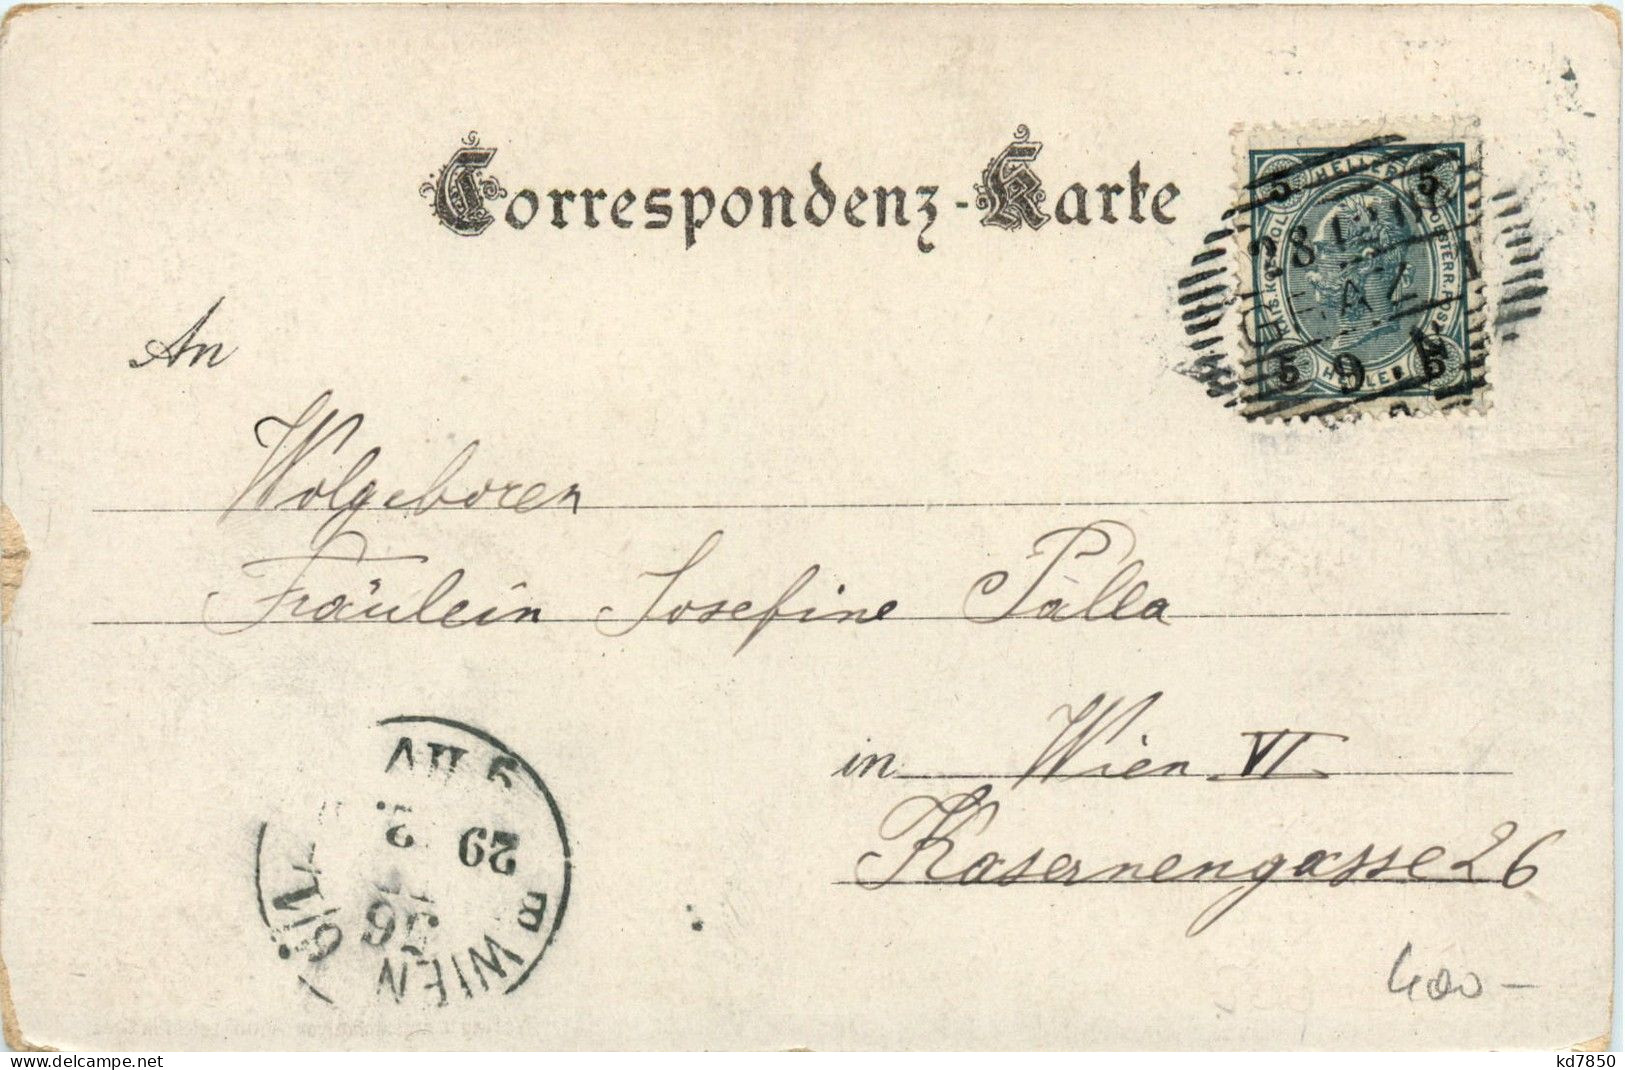 Correspondenz-Karte
5 HELLER 5
28 12 00
GRAZ
5 9 5
HELLER
An
Wolgeboren
Fräulein Josefine Palla
in Wien VI
Kasernengasse 26
29
WIEN
6/1
400 –
www.delcampe.net
kd7850